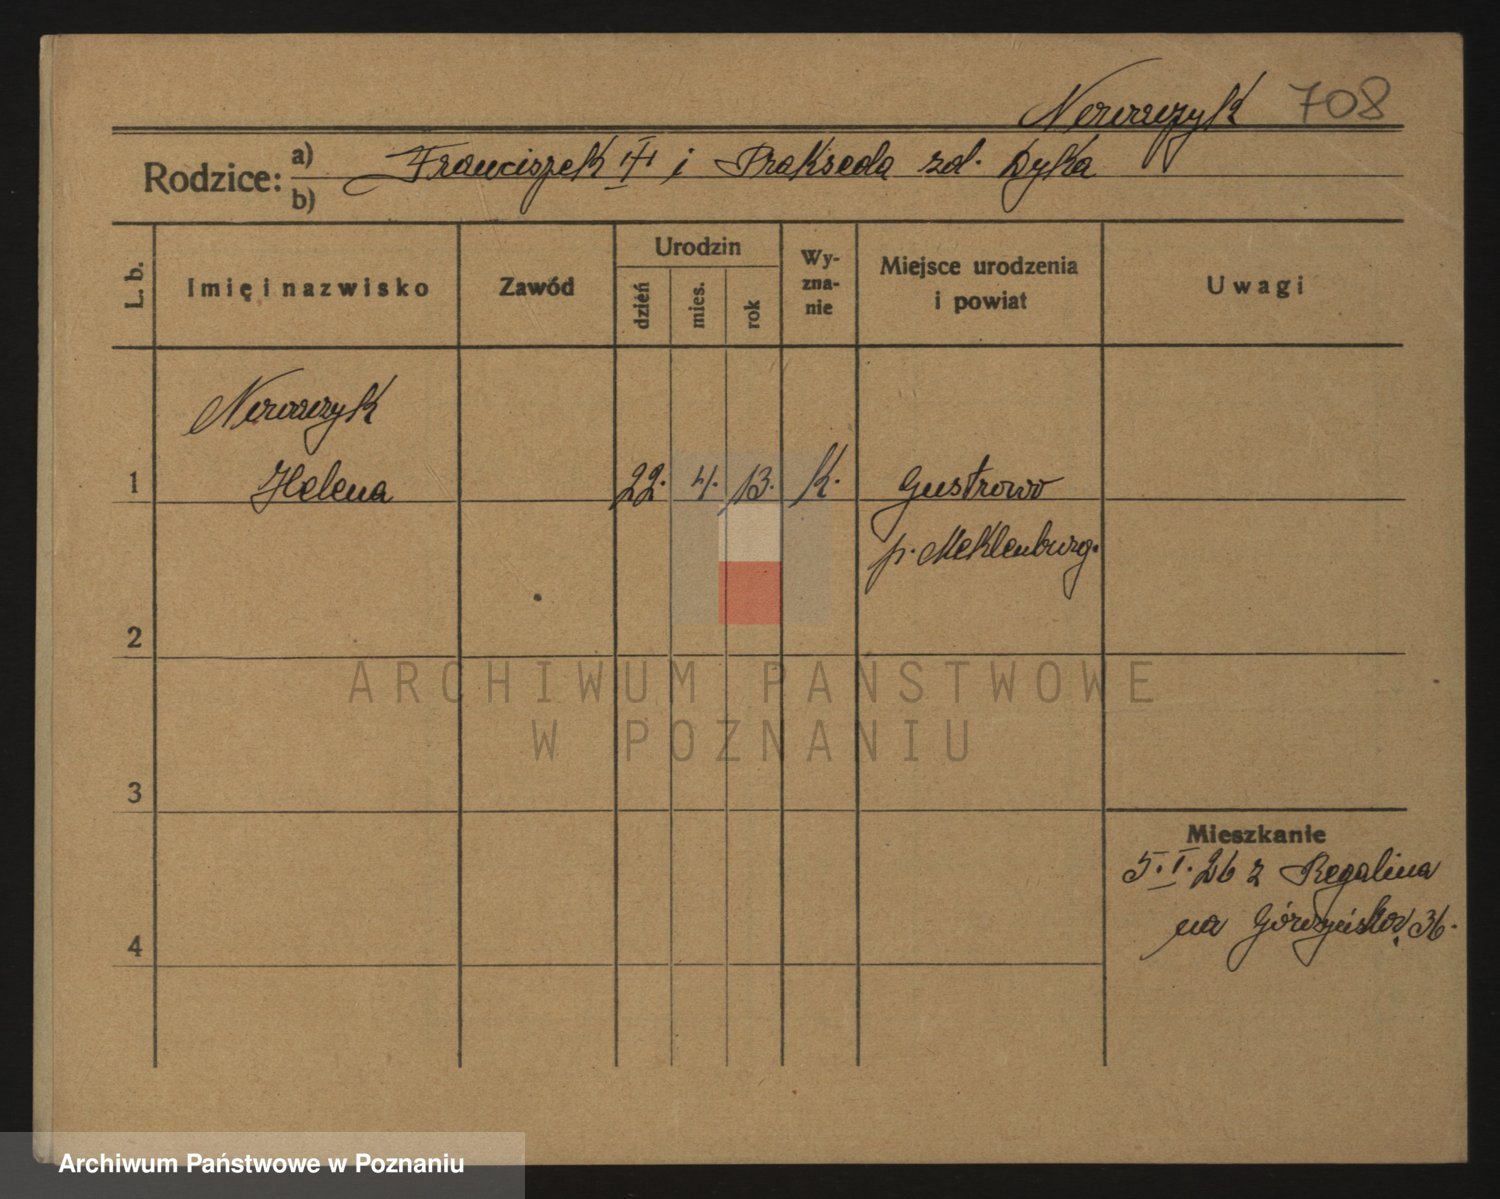 Nowaczyk 708
Rodzice: a) Franciszek i Prakseda zd. Dyka
b)
L. b. Imię i nazwisko Zawód Urodzin dzień mies. rok Wy-zna-nie Miejsce urodzenia i powiat Uwagi
Nowaczyk
1 Helena 22. 4. 13. K. Gustrowo
p. Meklenburg.
2
ARCHIWUM PAŃSTWOWE
W POZNANIU
3
Mieszkanie
5.I.26 z Regalina
4 na 36.
Archiwum Państwowe w Poznaniu